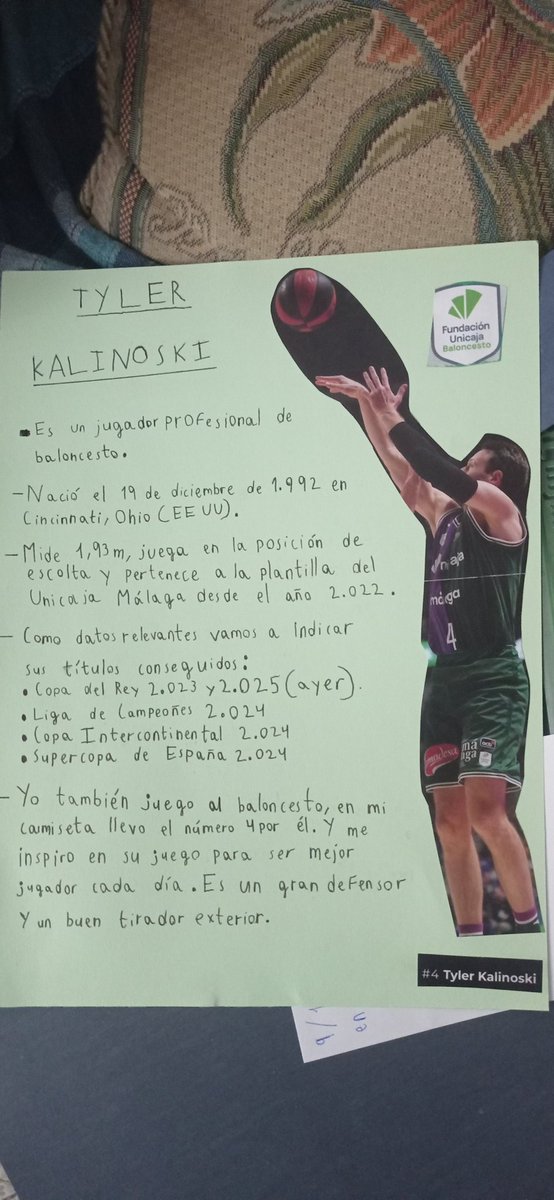 TYLER
KALINOSKI
Fundación
Unicaja
Baloncesto
Es un jugador profesional de
baloncesto.
- Nació el 19 de diciembre de 1.992 en
Cincinnati, Ohio (EE UU).
- Mide 1,93m, juega en la posición de
escolta y pertenece a la plantilla del
Unicaja Málaga desde el año 2.022.
- Como datos relevantes vamos a indicar
sus títulos conseguidos:
• Copa del Rey 2.023 y 2.025 (ayer).
• Liga de Campeones 2.024
• Copa Intercontinental 2.024
• Supercopa de España 2.024
- Yo también juego al baloncesto, en mi
camiseta llevo el número 4 por él. Y me
inspiro en su juego para ser mejor
jugador cada día. Es un gran defensor
Y un buen tirador exterior.
4
#4 Tyler Kalinoski